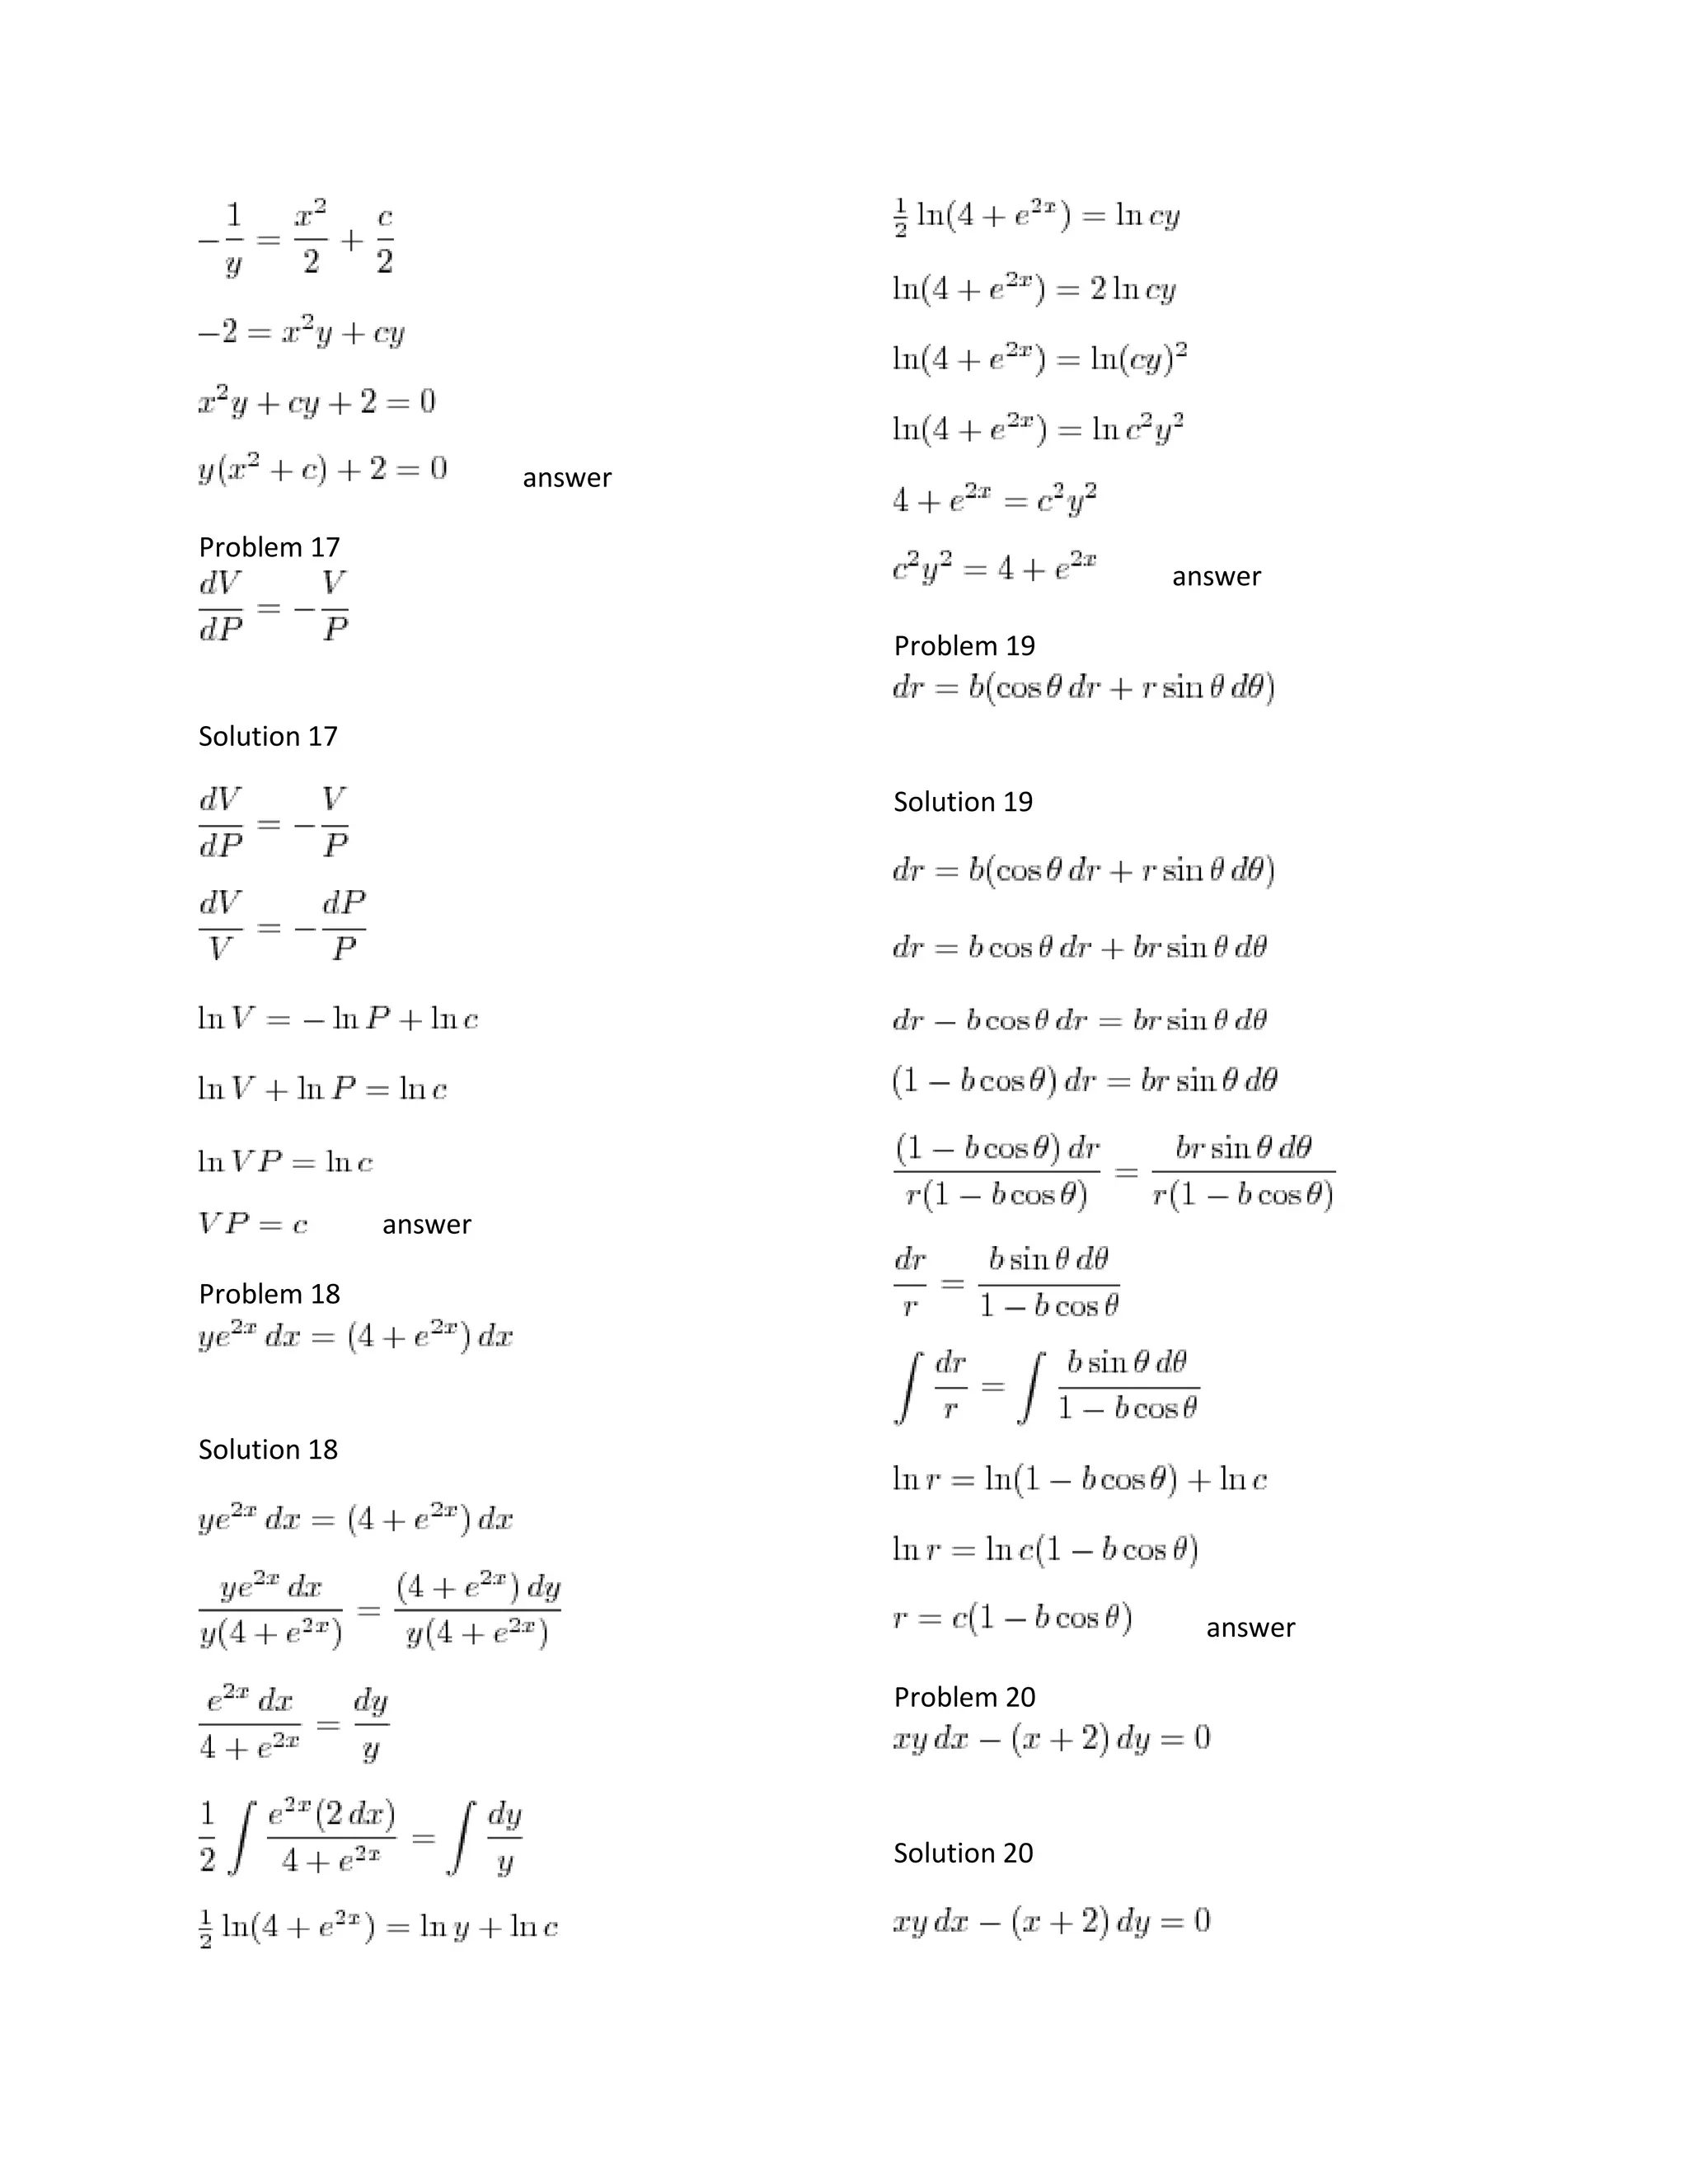 −1/y = x²/2 + c/2
−2 = x²y + cy
x²y + cy + 2 = 0
y(x² + c) + 2 = 0 answer
Problem 17
dV/dP = −V/P
Solution 17
dV/dP = −V/P
dV/V = −dP/P
ln V = − ln P + ln c
ln V + ln P = ln c
ln V P = ln c
V P = c answer
Problem 18
ye²ˣ dx = (4 + e²ˣ) dx
Solution 18
ye²ˣ dx = (4 + e²ˣ) dx
ye²ˣ dx / y(4 + e²ˣ) = (4 + e²ˣ) dy / y(4 + e²ˣ)
e²ˣ dx / 4 + e²ˣ = dy/y
1/2 ∫ e²ˣ(2 dx) / 4 + e²ˣ = ∫ dy/y
½ ln(4 + e²ˣ) = ln y + ln c
½ ln(4 + e²ˣ) = ln cy
ln(4 + e²ˣ) = 2 ln cy
ln(4 + e²ˣ) = ln(cy)²
ln(4 + e²ˣ) = ln c²y²
4 + e²ˣ = c²y²
c²y² = 4 + e²ˣ answer
Problem 19
dr = b(cos θ dr + r sin θ dθ)
Solution 19
dr = b(cos θ dr + r sin θ dθ)
dr = b cos θ dr + br sin θ dθ
dr − b cos θ dr = br sin θ dθ
(1 − b cos θ) dr = br sin θ dθ
(1 − b cos θ) dr / r(1 − b cos θ) = br sin θ dθ / r(1 − b cos θ)
dr/r = b sin θ dθ / 1 − b cos θ
∫ dr/r = ∫ b sin θ dθ / 1 − b cos θ
ln r = ln(1 − b cos θ) + ln c
ln r = ln c(1 − b cos θ)
r = c(1 − b cos θ) answer
Problem 20
xy dx − (x + 2) dy = 0
Solution 20
xy dx − (x + 2) dy = 0